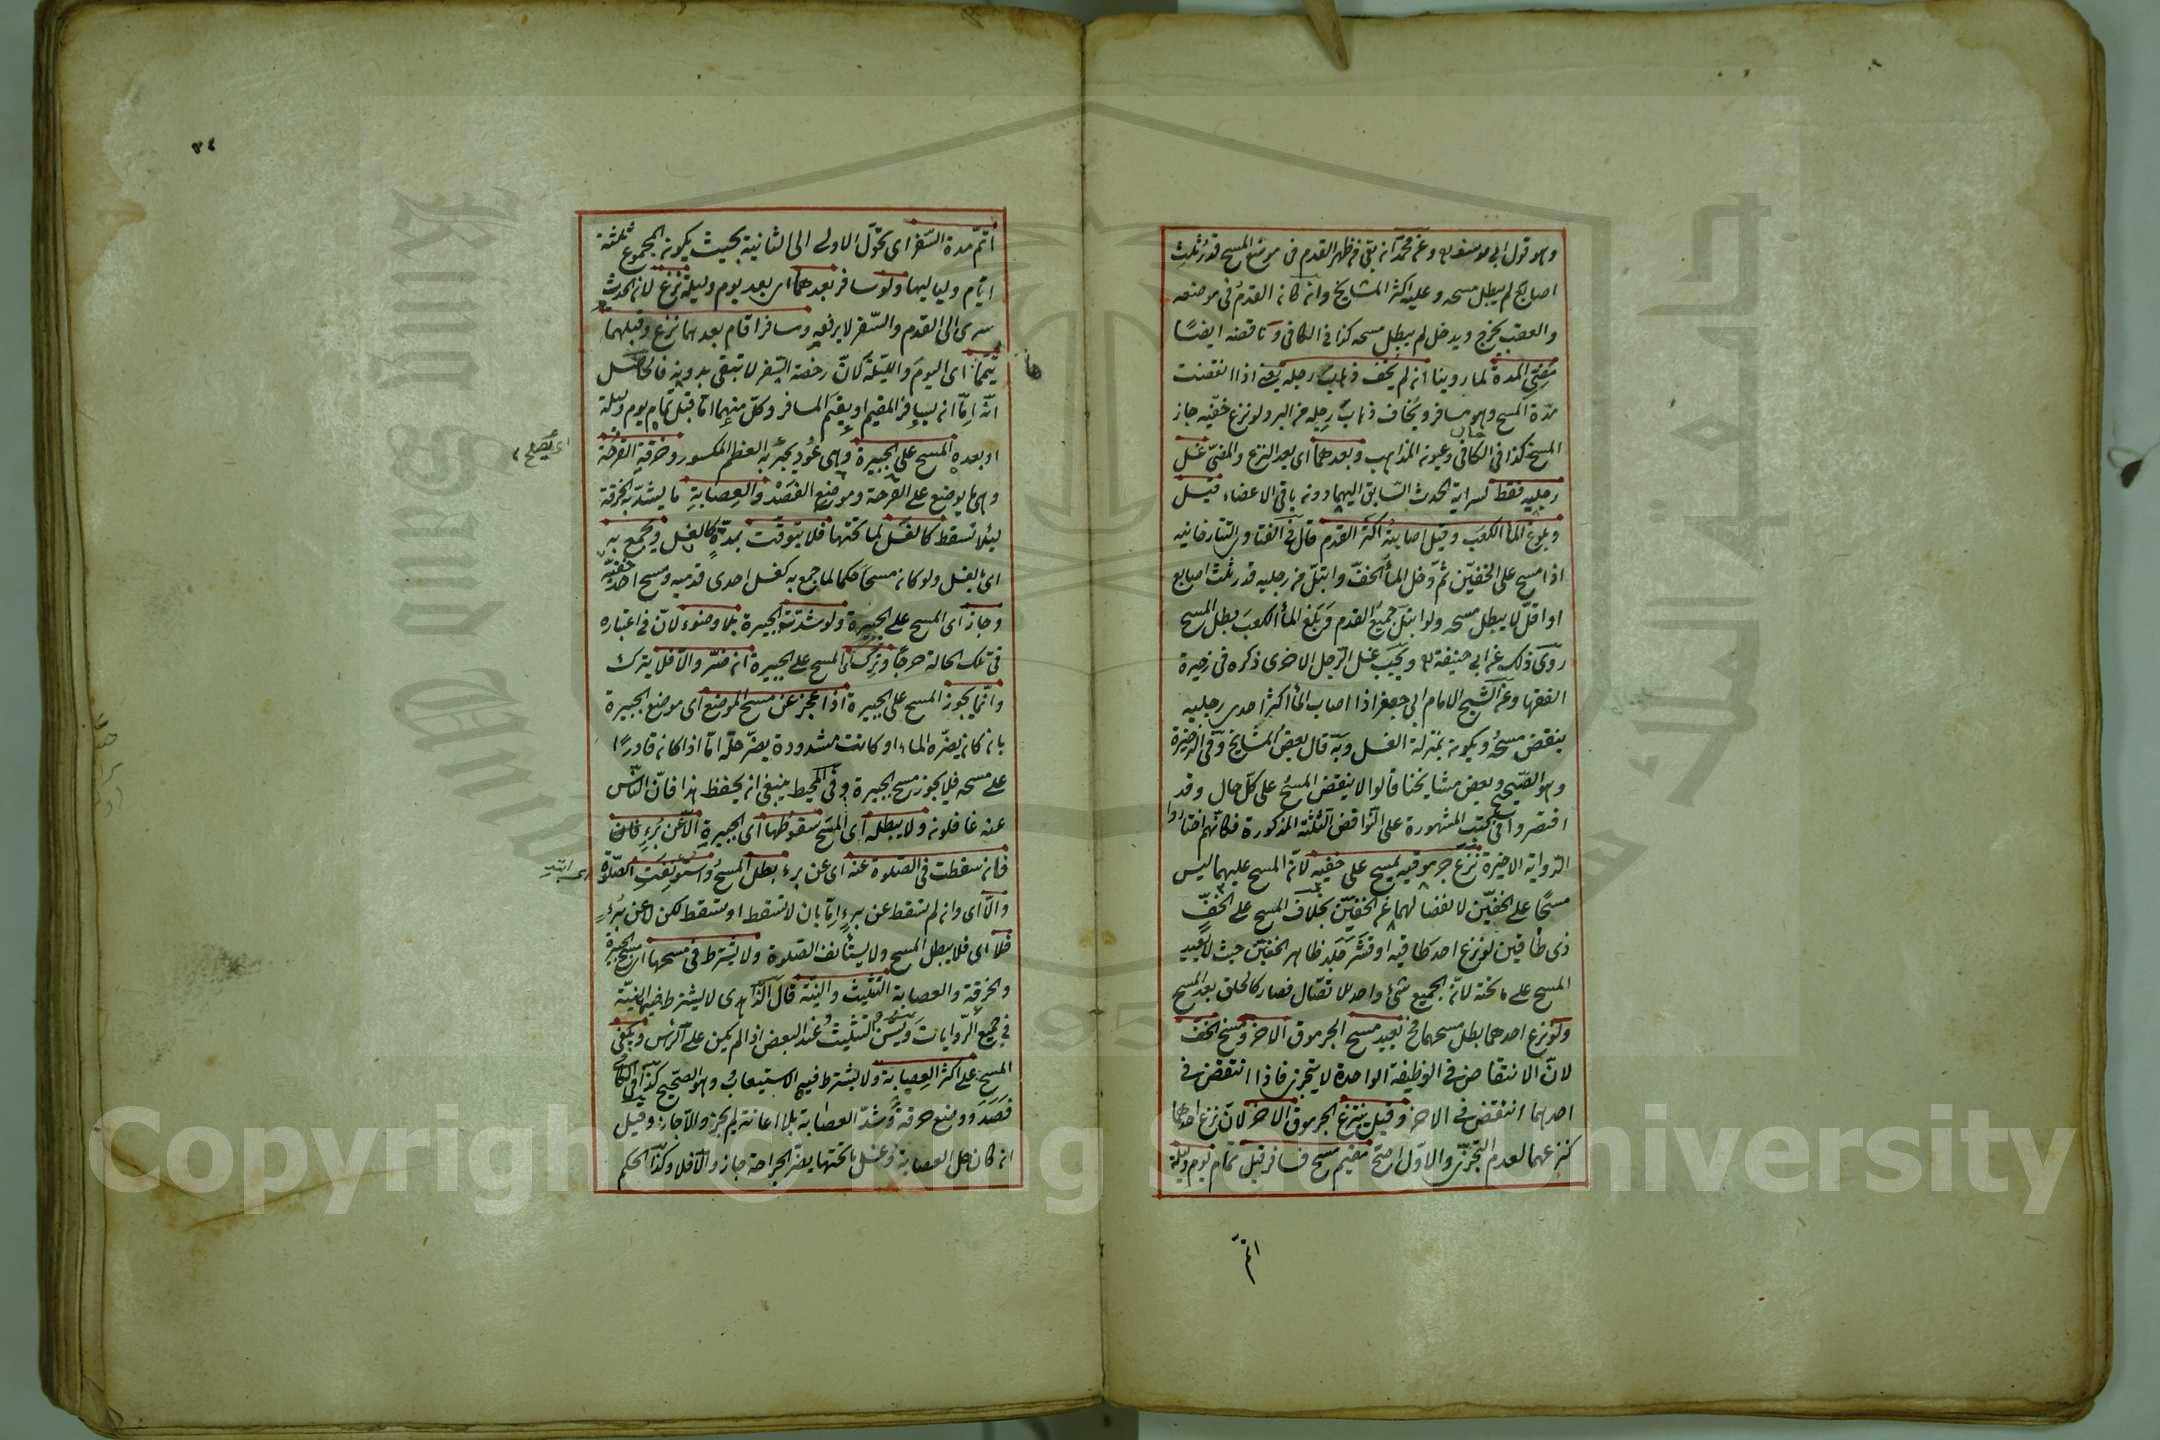 وهو قول ابي يوسف ره وعن محمد انه بقي من ظهر القدم في موضع المسح قدر ثلث
اصابع لم يبطل مسحه وعليه اكثر المشايخ وان كانه القدم في موضعه
والعقب يخرج ويدخل لم يبطل مسحه كذا في الكافي وناقضه ايضًا
مضي المدة لما روينا ان لم يخف ذهاب رجله يعني اذا انقضت
مدة المسح وهو مسافر ويخاف ذهاب رجله من البرد لو نزع خفيه جاز
المسح كذا في الكافي وعيون المذاهب وبعدهما اى بعد النزع والمضي غسل
رجليه فقط لسراية الحدث السابق اليهما دونه باقي الاعضاء قيل
وبلوغ الماء الكعب وقيل اصابته اكثر القدم قال في الفتاوى التتارخانيه
اذا مسح على الخفين ثم دخل الماء الخف وابتل من رجليه قدر ثلث اصابع
او اقل لا يبطل مسحه ولو ابتل جميع القدم وبلغ الماء الكعب بطل المسح
روى ذلك عن ابي حنيفة ره ويجب غسل الرجل الاخرى ذكره في ذخيرة
الفقها وعن الشيخ الامام ابي جعفر اذا اصاب الماء اكثر احدى رجليه
ينقض مسحه ويكونه بمنزلة الغسل وبه قال بعض المشايخ وفي الذخيرة
وهو الصحيح وبعض مشايخنا قالوا لا ينقض المسح على كل حال وقد
اقتصروا في الكتب المشهورة على النواقض الثلثة المذكورة فكانهم اختاروا
الرواية الاخيرة نزع جرموقيه يمسح على خفيه لانه المسح عليهما ليس
مسحًا على الخفين لانفصالهما عن الخفين بخلاف المسح على الخف
ذي طاقين لو نزع احد طاقيه او قشر جلد ظاهر الخفين حيث لا يعيد
المسح على ما تحته لانه الجميع شئ واحد للاتصال فصار كالحلق بعد المسح
ولو نزع احدهما بطل مسحهما فح يعيد مسح الجرموق الاخر ومسح الخف
لان الانتقاض في الوظيفة الواحدة لا يتجزى فاذا انتقض في
احدهما انتقض في الاخر وقيل ينزع الجرموق الاخر لان نزع احدهما
كنزعهما لعدم التجزى والاول اصح مقيم مسح فسافر قبل تمام يوم وليلة
اتم
٣٤
اتم مدة السفر اى تحول الاولى الى الثانية بحيث يكونه المجموع ثلثة
ايام ولياليها ولو سافر بعدهما اى بعد يوم وليلة نزع لانه الحدث
سرى الى القدم والسفر لا يرفعه ومسافر اقام بعدهما نزع وقبلهما
يتمها اى اليوم والليلة لان رخصة السفر لا تبقى بدونه فالحاصل
انه اما انه يسافر المقيم او يقيم المسافر وكل منهما اما قبل تمام يوم وليلة
او بعده المسح على الجبيرة وهي عود يجبر به العظم المكسور وخرقة القرحة
اى يصلح
وهى ما يوضع على القرحة وموضع الفصد والعصابة ما يشد به الخرقة
لئلا تسقط كالغسل لما تحتها فلا يتوقت بمدة كالغسل ويجمع به
اى بالغسل ولو كانه مسحا حكما لما جمع به كغسل احدى قدميه ومسح احد خفيه
وجاز اى المسح على الجبيرة ولو شدت الجبيرة بلا وضوء لان في اعتباره
في تلك الحالة حرجًا وترك المسح على الجبيرة ان ضر والا فلا يترك
وانما يجوز المسح على الجبيرة اذا عجز عن مسح الموضع اى موضع الجبيرة
بانه كانه يضره الماء او كانت مشدودة يضر حلها اما اذا كانه قادرًا
على مسحه فلا يجوز مسح الجبيرة وفي المحيط ينبغي انه يحفظ هذا فان الناس
عنه غافلونه ولا يبطله اى المسح سقوطها اى الجبيرة الا عن برء
فانه سقطت في الصلوة عنه اى عن برء بطل المسح واستونفت الصلوة
والا اى وانه لم تسقط عن برء اما بان لا تسقط او تسقط لكن لا عن برء
فلا اى فلا يبطل المسح ولا يستأنف الصلوة ولا يشترط في مسحها اى مسح الجبيرة
والخرقة والعصابة التثليث والنية قال الزاهدى لا يشترط فيها النية
في جميع الروايات ويسن التثليث عند البعض اذا لم يكن على الرأس ويكفي
المسح على اكثر العصابة ولا يشترط فيها الاستيعاب وهو الصحيح كذا في الكافي
فصد ووضع خرقة وشد العصابة بلا اعانة لم يجز والا جاز وقيل
انه كان حل العصابة وغسل ما تحتها يضر الجراحة جاز والا فلا وكذا الحكم
Copyright © King Saud University